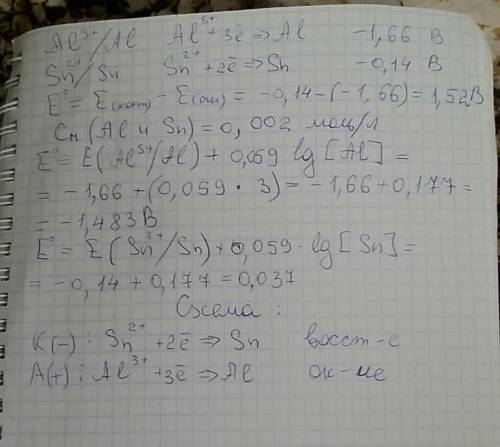 Al³⁺/Al Al³⁺+3ē ⇒ Al -1,66 В
Sn²⁺/Sn Sn²⁺+2ē ⇒ Sn -0,14 В
E° = E(кат) - E(ан) = -0,14-(-1,66) = 1,52В
См (Al и Sn) = 0,002 моль/л
E° = E(Al³⁺/Al) + 0,059 lg [Al] =
= -1,66 + (0,059 · 3) = -1,66 + 0,177 =
= -1,483 В
E° = E (Sn²⁺/Sn) + 0,059 · lg [Sn] =
= -0,14 + 0,177 = 0,037
Схема :
К(-) : Sn²⁺ +2ē ⇒ Sn восст-е
А(+) : Al³⁺ +3ē ⇒ Al ок-ие